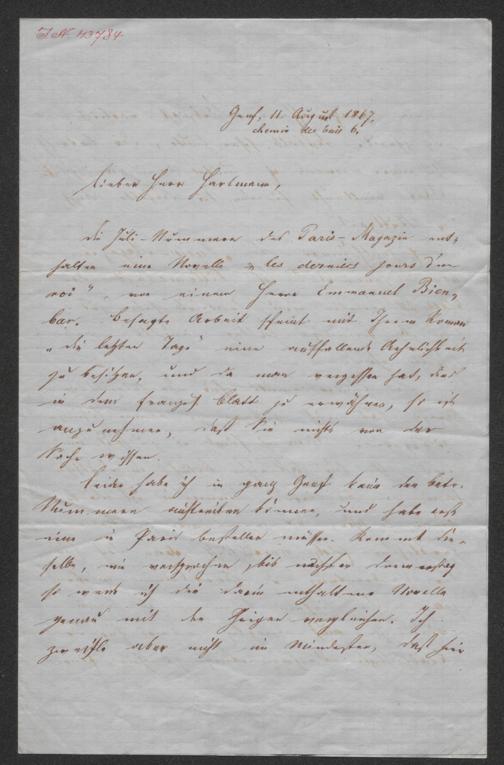 IN 43784
Genf, 11 August 1867.
chemin des 6.
Lieber Herr Hartmann,
Die Juli-Nummern des Paris-Magazin ent-
halten eine Novelle „les derniers jours d'un
roi", von einem Herrn Emmanuel
Besagte Arbeit scheint mit Ihrem Roman
„die letzten Tage" eine auffallende Aehnlichkeit
zu besitzen, und da man vergessen hat, dies
in dem französ. Blatt zu erwähnen, so ist
anzunehmen, daß Sie nichts von der
Sache wissen.
Leider habe ich in ganz Genf keine der betr.
Nummern auftreiben können, und habe erst
eine in Paris bestellen müssen. Kommt die-
selbe, wie versprochen, bis nächsten Donnerstag
so werde ich die darin enthaltene Novelle
genau mit der Ihrigen vergleichen. Ich
zweifle aber nicht im Mindesten, daß hier